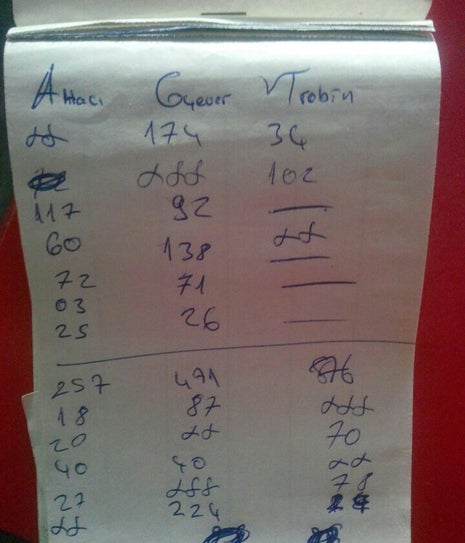 Attaci Gyever VTrobin
∝∝ 174 34
∝∝∝ 102
117 92 —
60 138 ∝∝ —
72 71 —
03
25 26 —
257 471 876
18 87 ∝∝∝
20 ∝∝ 70
40 40 ∝∝
27 ∝∝∝ 78
∝∝ 224